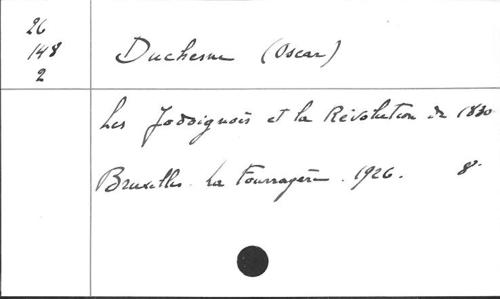 26
148
2
Duchesne (Oscar)
Les Jodoignois et la Révolution de 1830
Bruxelles. La Fourragère. 1926. 8º